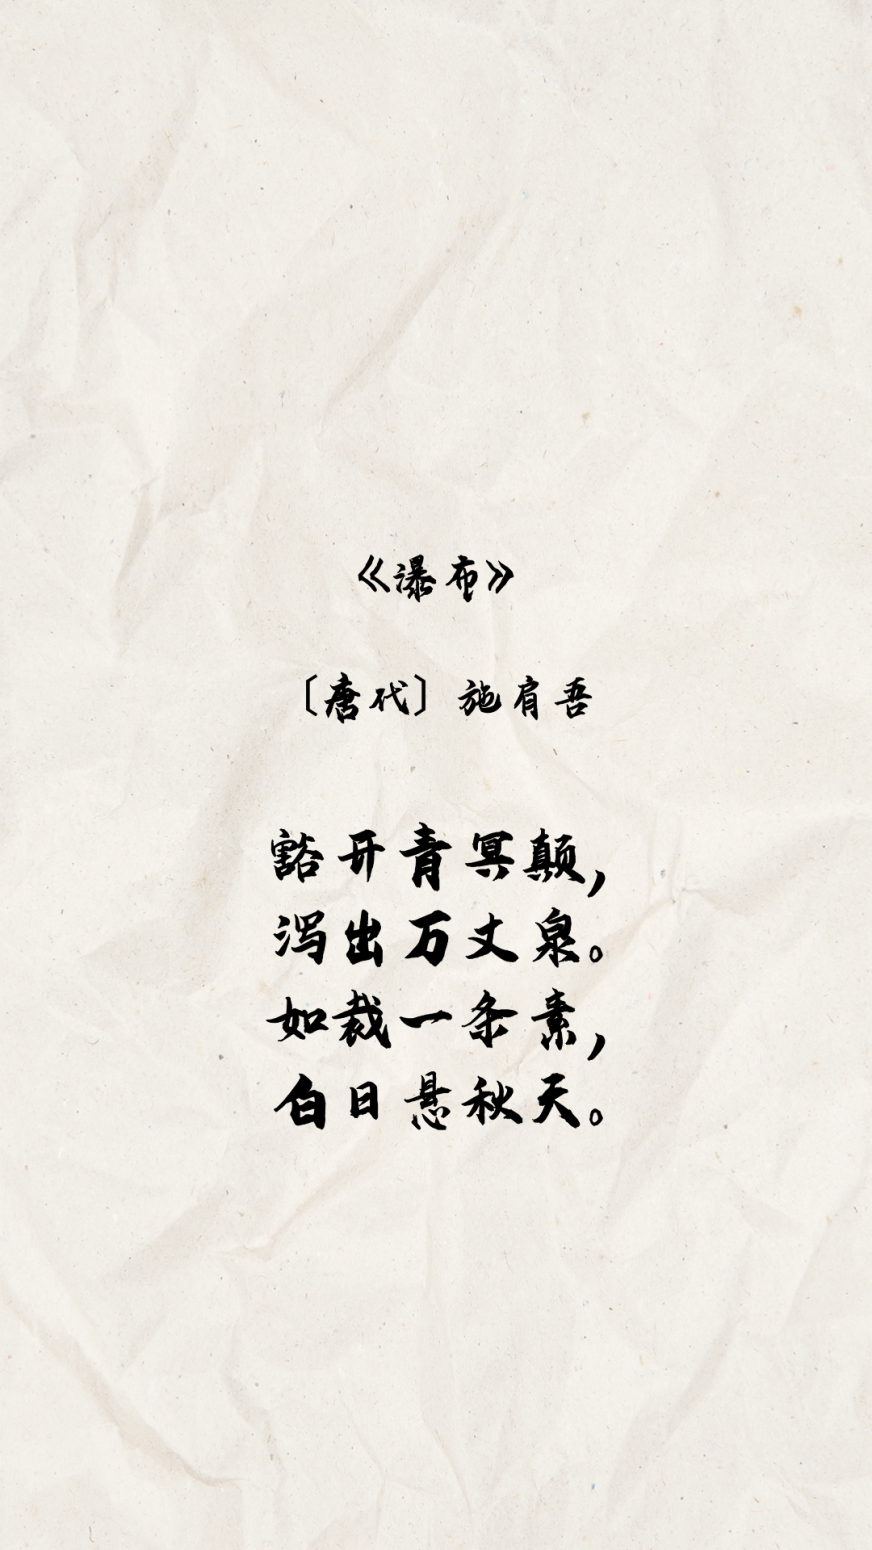 《瀑布》
〔唐代〕施肩吾
豁开青冥颠，
泻出万丈泉。
如裁一条素，
白日悬秋天。